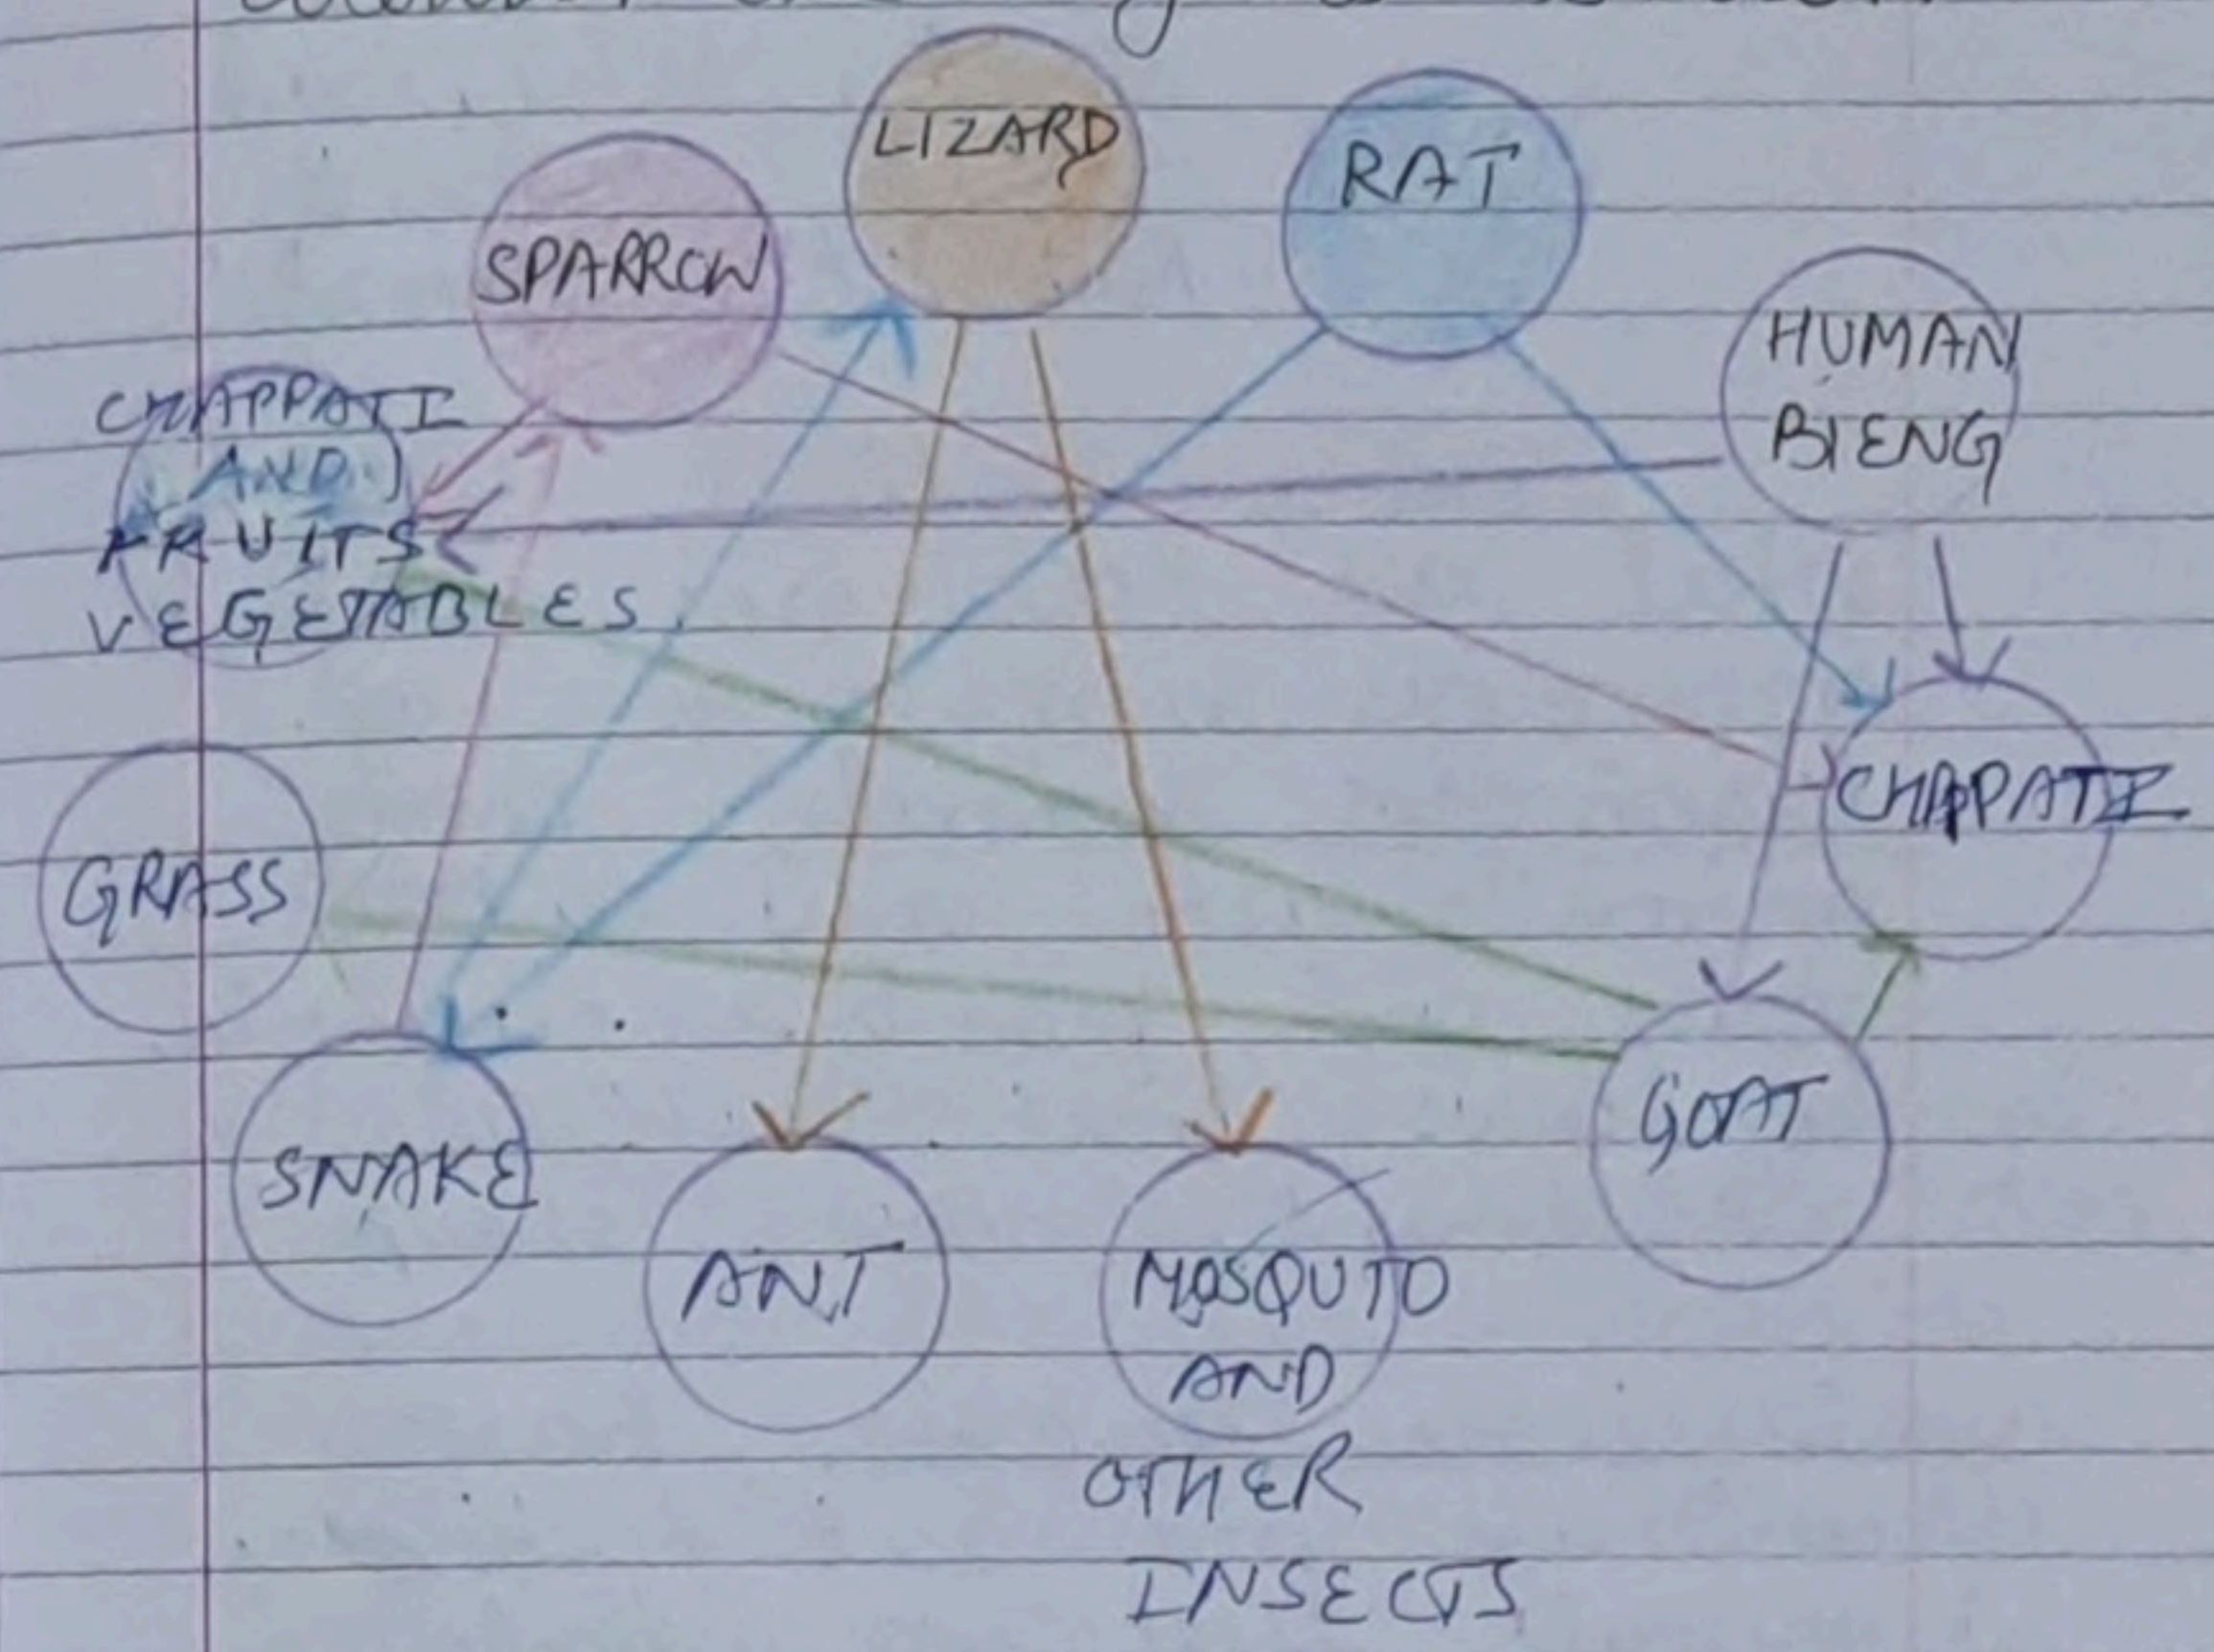 LIZARD
RAT
SPARROW
HUMAN
BIENG
CHAPPATI
AND
FRUITS
VEGETABLES
CHAPPATI
GRASS
GOAT
SNAKE
ANT
MOSQUTO
AND
OTHER
INSECTS